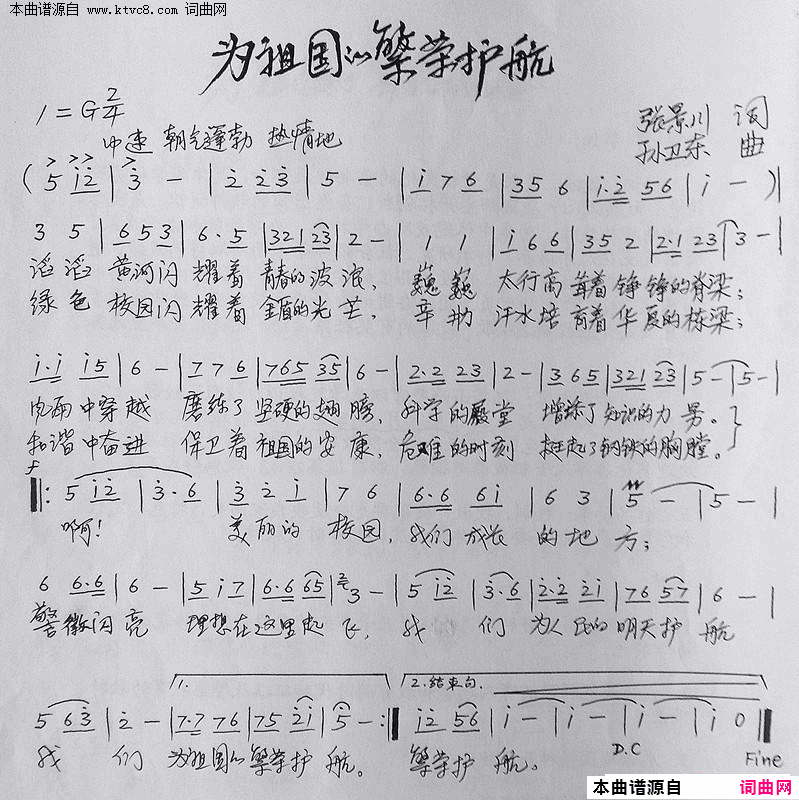 本曲谱源自 www.ktvc8.com 词曲网
为祖国的繁荣护航
1=G 2/4
张景川 词
中速 朝气蓬勃 热情地
孙卫东 曲
( 5 i2 | 3 - | 2 23 | 5 - | i 7 6 | 35 6 | i·2 56 | i - )|
3 5 | 6 5 3 | 6· 5 | 321 23 | 2 - | 1 1 | i 6 6 | 35 2 | 2·1 23 | 3 - |
滔滔 黄河闪 耀着 青春的波浪， 巍巍 太行高 耸着 铮铮的脊梁；
绿色 校园闪 耀着 金盾的光芒， 辛勤 汗水培 育着 华夏的栋梁；
i·i i5 | 6 - | 7 7 6 | 765 35 | 6 - | 2·2 23 | 2 - | 3 6 5 | 321 23 | 5 - | 5 - |
风雨中穿越 磨练了 坚硬的翅膀， 科学的殿堂 增添了知识的力量。
和谐中奋进 保卫着祖国的安康， 危难的时刻 挺起了钢铁的胸膛。
f
‖: 5 i2 | 3·6 | 3 2 i | 7 6 | 6·6 6i | 6 3 | 5 - | 5 - |
啊！ 美丽的 校园， 我们成长 的地方；
6 6·6 | 6 - | 5 i 7 | 6·6 65 | 2 3 - | 5 i2 | 3·6 | 2·2 2i | 76 57 | 6 - |
警徽闪亮 理想在这里起飞， 我们 为人民的明天护航
1. 2.结束句.
5 63 | 2 - | 7·7 76 | 75 2i | 5 - :‖ i2 56 | i - | i - | i - | i 0 ‖
我们 为祖国的繁荣护航。 繁荣护航。
D.C Fine
本曲谱源自 词曲网